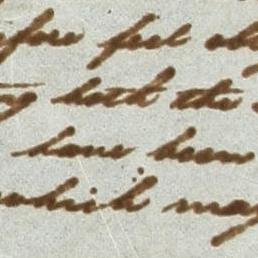 before feel
both the
have been
which may